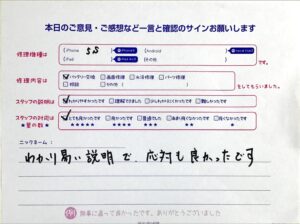 本日のご意見・ご感想など一言と確認のサインお願いします
修理機種は
iPhone 5s
Android
iPad
その他
修理内容は
バッテリー交換 画面修理 水没修理 パーツ修理
その他
をしてもらいました。
スタッフの説明は
わかりやすかったです 理解できました 少しわかりにくかったです 難しかったです
スタッフの対応は
★の数が
とても良かったです 良かったです 普通でした あまり良くなかったです 良くなかったです
★★★★★ ★★★★ ★★★ ★★ ★
ニックネーム：
わかり易い説明で、応対も良かったです
無事に直って良かったです。ありがとうございました